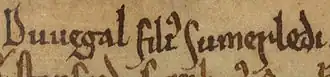 Duuegal fili' Sumerledi